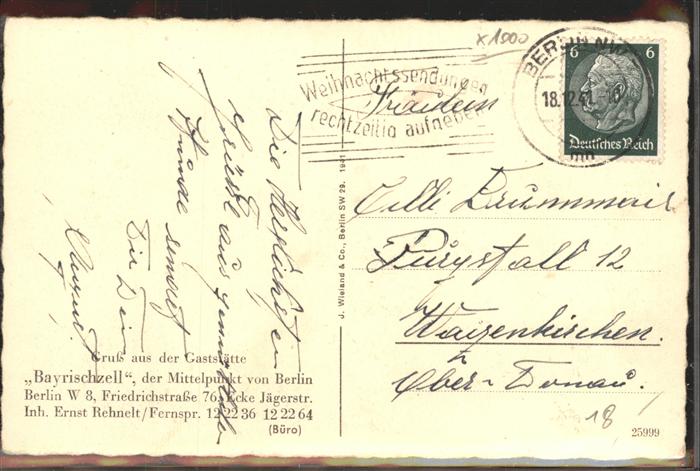 x1000
BERLIN NW
18.12.41
6 6
Deutsches Reich
Weihnachtssendungen
rechtzeitig aufgeben
Fräulein
Cilli
12
Waizenkirchen.
Ober-Donau.
18
25999
J. Wieland & Co., Berlin SW 29. 1941
Die herzlichsten
Grüße aus
Stunde sendet
Dir Dein
August.
Gruß aus der Gaststätte
„Bayrischzell“, der Mittelpunkt von Berlin
Berlin W 8, Friedrichstraße 76, Ecke Jägerstr.
Inh. Ernst Rehnelt/Fernspr. 12 22 36 12 22 64
(Büro)